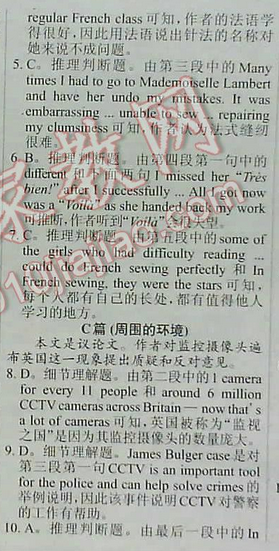 regular French class 可知，作者的法语学
得很好，因此用法语说出针法的名称对
她来说不成问题。
5. C。推理判断题。由第三段中的 Many
times I had to go to Mademoiselle Lambert
and have her undo my mistakes. It was
embarrassing ... unable to sew ... repairing
my clumsiness 可知，作者认为法式缝纫
很难。
6. B。推理判断题。由第四段第一句中的
different 和后面两句 I missed her “Très
bien!” after I successfully ... All I got now
was a “Voila” as she handed back my work
可推断，作者听到“Voila”会很失望。
7. C。推理判断题。由第五段中的 some of
the girls who had difficulty reading ...
could do French sewing perfectly 和 In
French sewing, they were the stars 可知，
每个人都有自己的长处，都有值得他人
学习的地方。
C篇（周围的环境）
本文是议论文。作者对监控摄像头遍
布英国这一现象提出质疑和反对意见。
8. D。细节理解题。由第二段中的 1 camera
for every 11 people 和 around 6 million
CCTV cameras across Britain — now that's
a lot of cameras 可知，英国被称为“监视
之国”是因为其监控摄像头的数量庞大。
9. D。细节理解题。James Bulger case 是对
第三段第一句 CCTV is an important tool
for the police and can help solve crimes 的
举例说明，因此该事件说明 CCTV 对警察
的工作有帮助。
10. A。推理判断题。由最后一段中的 In